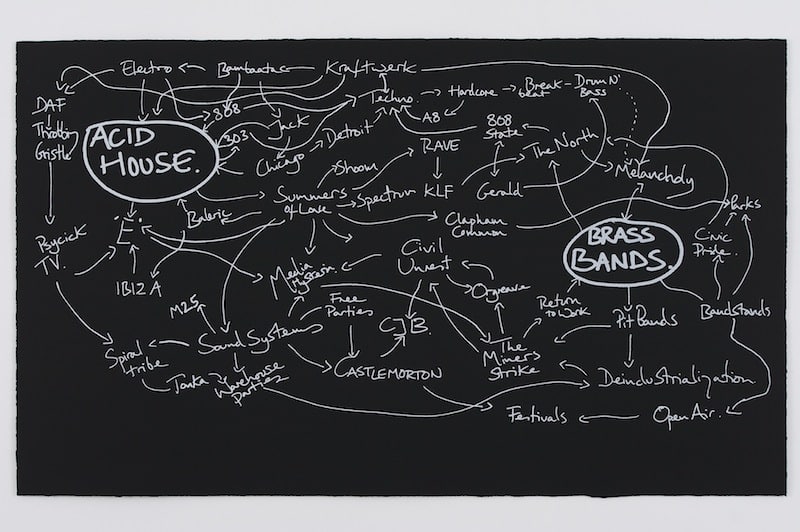 Electro
Bambaataa
Kraftwerk
DAF
808
Techno
Hardcore
Break-
beat
Drum N'
Bass
Throbbing
Gristle
ACID
HOUSE.
303
Jack
Detroit
A8
808
State
RAVE
The North
Chicago
Shoom
Melancholy
Summers
of Love
Spectrum
KLF
Gerald
Balearic
Clapham
Common
Parks
Psychick
TV.
'E'
Civil
Unrest
BRASS
BANDS.
Civic
Pride.
IBIZA
Media
Hysteria
Orgreave
M25
Free
Parties
CJB.
Return
to Work
Pit Bands
Bandstands
Spiral
tribe
Sound Systems
The
Miners
Strike
Tonka
Warehouse
Parties
CASTLEMORTON
Deindustrialization
Festivals
Open Air.